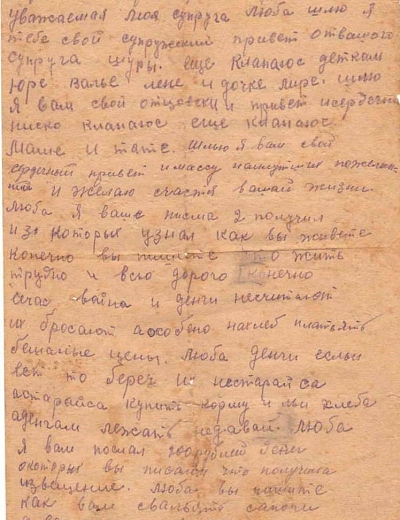 Уважаемая моя супруга Люба шлю я
тебе свой супружеский привет от вашого
супруга шуры. еще кланаюс деткам
юре валье лене и дочке лире. шлю
я вам свой отцовский привет и сердечно
ниско кланаюс еще кланаюс
маше и тате. шлю я вам свой
сердечный привет и массу наилутших пожелан-
ий и желаю счастя вашей жизни.
Люба я ваше писма 2 получил
из которых узнал как вы живете
конечно вы пишите что жить
трудно и всю дорого конечно
счас война и денги несчитают
их бросают а особено нахлеб платять
бешаные цены. Люба денги если
ест то береч их нестарайса
а старайса купить корму или хлеба
а денгам лежать недавай. Люба
я вам послал 200 рублей денег
о которых вы писали что получили
извещение. Люба вы пишите
как вам свалять сапоги